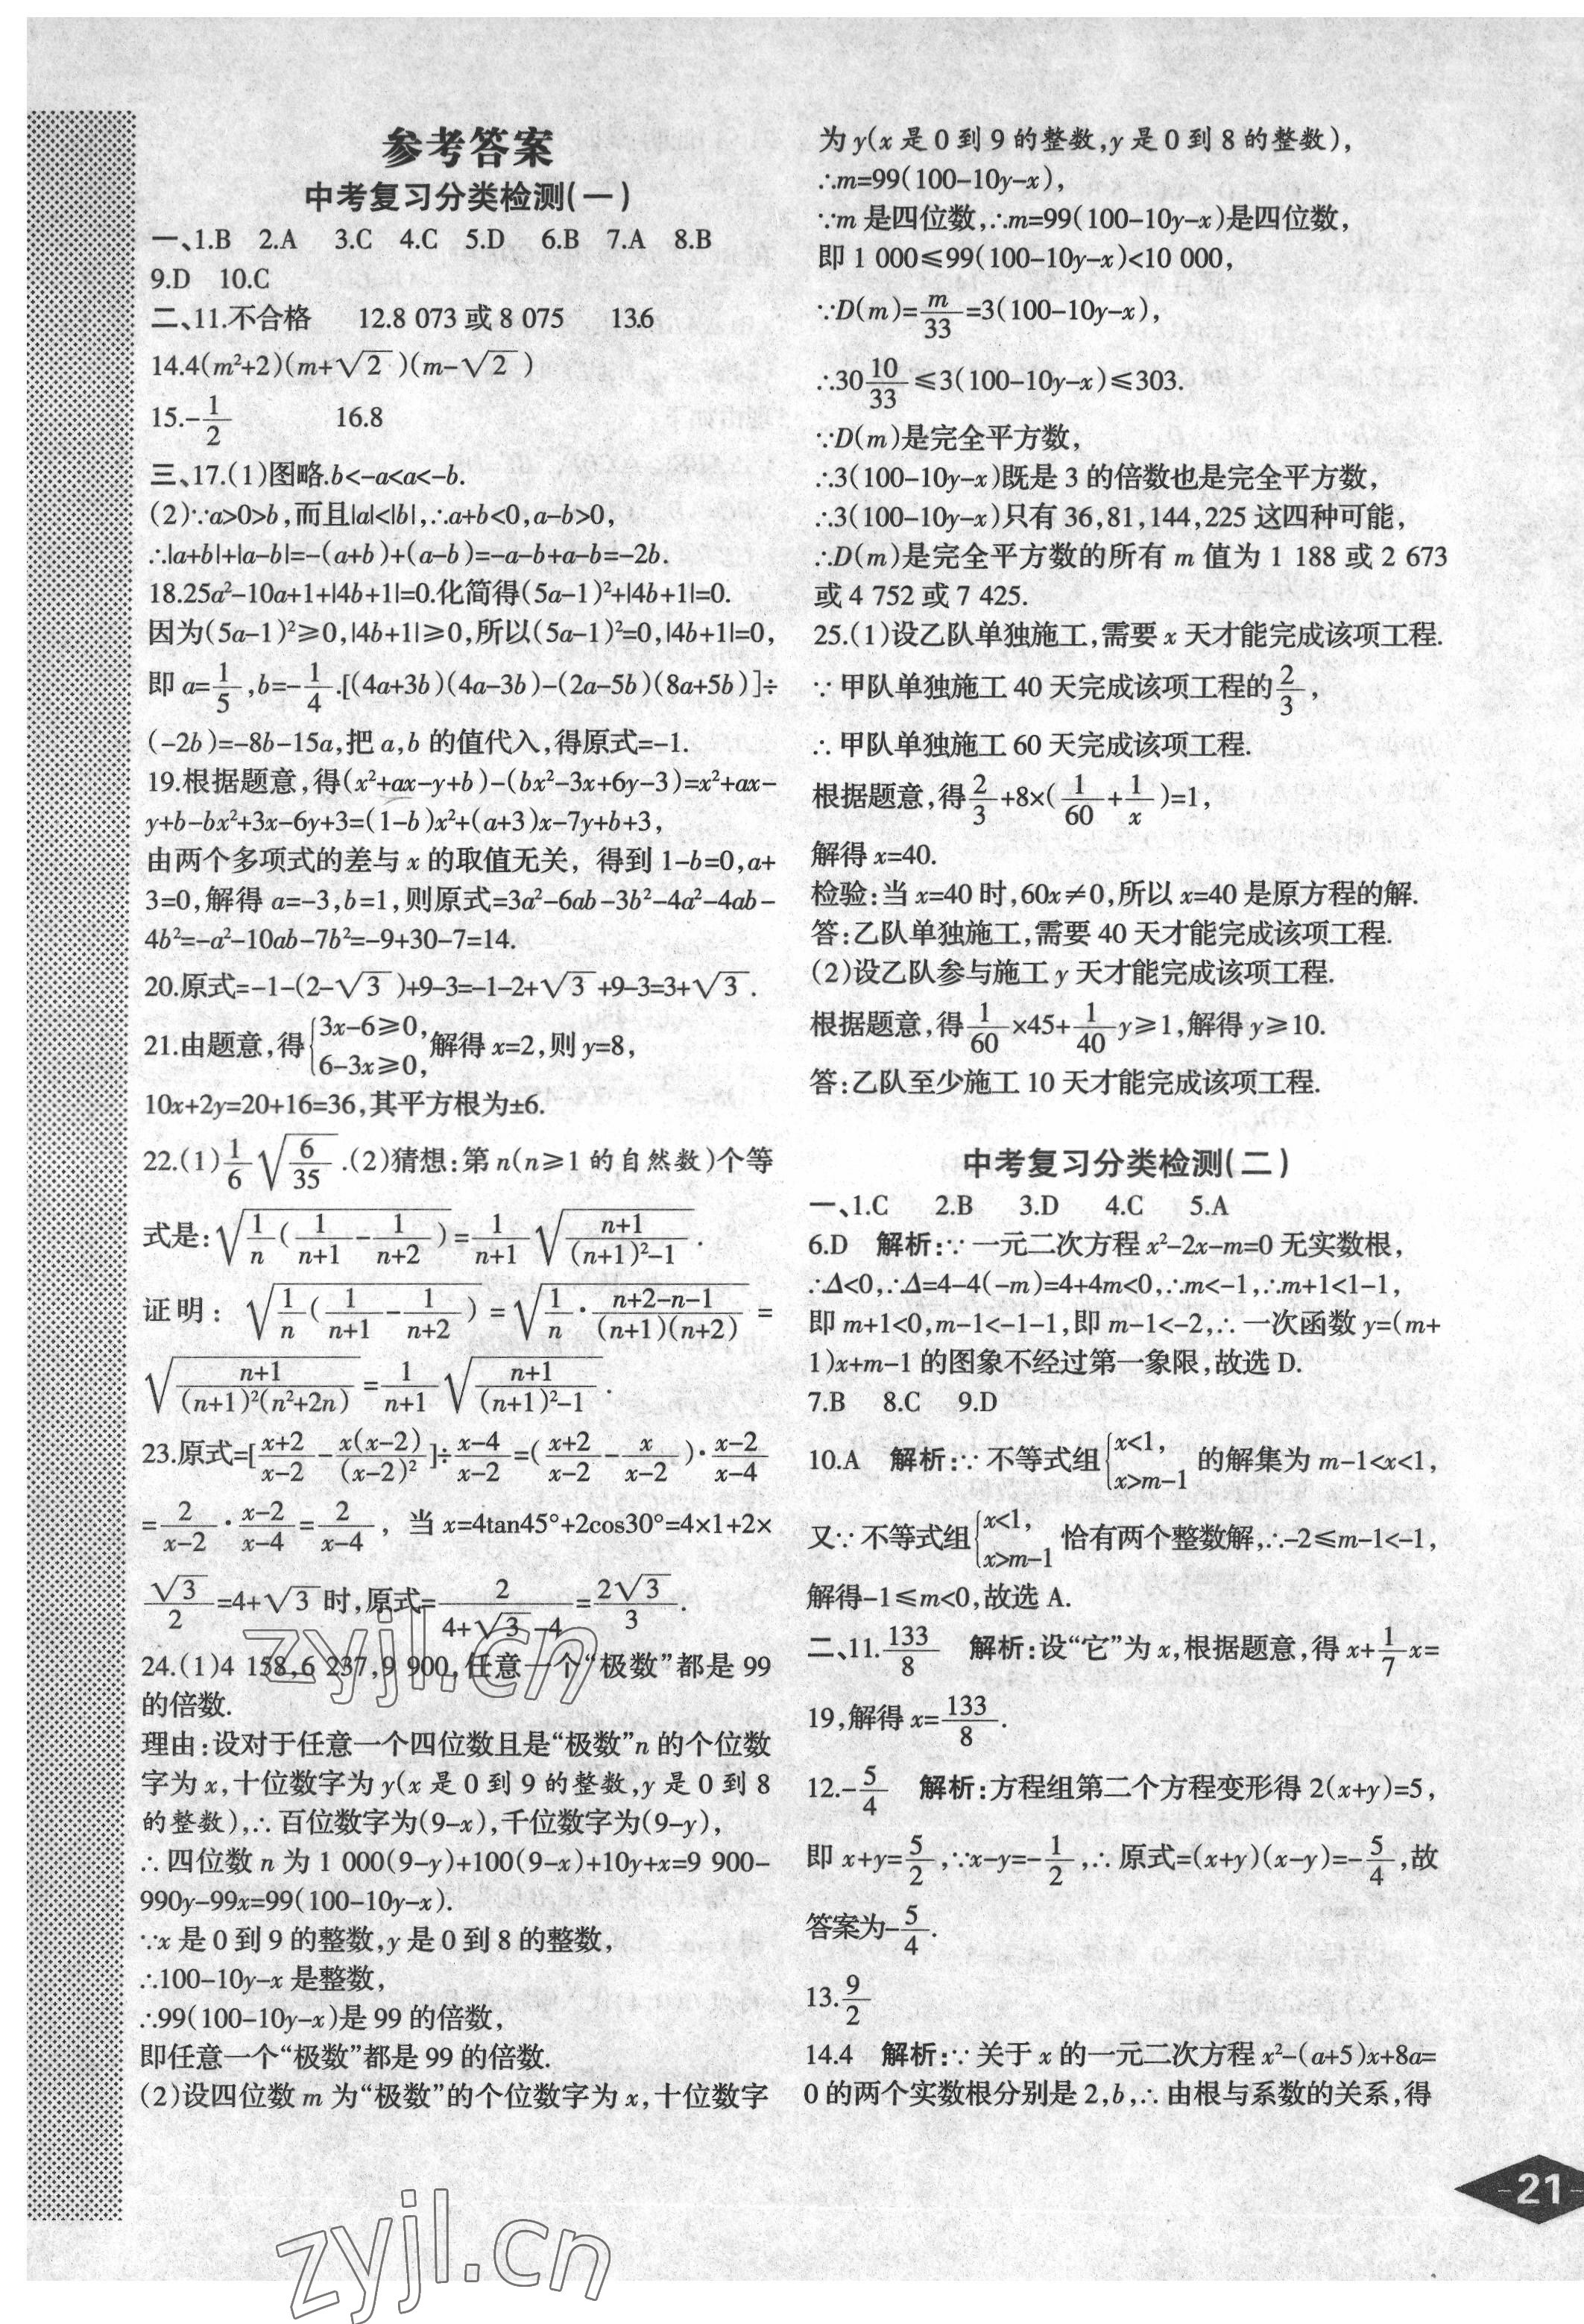 参考答案
中考复习分类检测(一)
一、1.B 2.A 3.C 4.C 5.D 6.B 7.A 8.B
9.D 10.C
二、11.不合格 12.8 073或8 075 13.6
14.4(m²+2)(m+√2)(m-√2)
15.-1/2 16.8
三、17.(1)图略.b<-a<a<-b.
(2)∵a>0>b,而且|a|<|b|,∴a+b<0,a-b>0,
∴|a+b|+|a-b|=-(a+b)+(a-b)=-a-b+a-b=-2b.
18.25a²-10a+1+|4b+1|=0.化简得(5a-1)²+|4b+1|=0.
因为(5a-1)²≥0,|4b+1|≥0,所以(5a-1)²=0,|4b+1|=0,
即a=1/5,b=-1/4.[(4a+3b)(4a-3b)-(2a-5b)(8a+5b)]÷
(-2b)=-8b-15a,把a,b的值代入,得原式=-1.
19.根据题意,得(x²+ax-y+b)-(bx²-3x+6y-3)=x²+ax-
y+b-bx²+3x-6y+3=(1-b)x²+(a+3)x-7y+b+3,
由两个多项式的差与x的取值无关,得到1-b=0,a+
3=0,解得a=-3,b=1,则原式=3a²-6ab-3b²-4a²-4ab-
4b²=-a²-10ab-7b²=-9+30-7=14.
20.原式=-1-(2-√3)+9-3=-1-2+√3+9-3=3+√3.
21.由题意,得{3x-6≥0, 6-3x≥0,解得x=2,则y=8,
10x+2y=20+16=36,其平方根为±6.
22.(1)1/6√(6/35).(2)猜想:第n(n≥1的自然数)个等
式是:√(1/n(1/(n+1)-1/(n+2)))=1/(n+1)√((n+1)/((n+1)²-1)).
证明:√(1/n(1/(n+1)-1/(n+2)))=√(1/n·(n+2-n-1)/((n+1)(n+2)))=
√((n+1)/((n+1)²(n²+2n)))=1/(n+1)√((n+1)/((n+1)²-1)).
23.原式=[(x+2)/(x-2)-x(x-2)/(x-2)²]÷(x-4)/(x-2)=((x+2)/(x-2)-x/(x-2))·(x-2)/(x-4)
=2/(x-2)·(x-2)/(x-4)=2/(x-4),当x=4tan45°+2cos30°=4×1+2×
√3/2=4+√3时,原式=2/(4+√3-4)=2√3/3.
24.(1)4 158,6 237,9 900,任意一个“极数”都是99
的倍数.
理由:设对于任意一个四位数且是“极数”n的个位数
字为x,十位数字为y(x是0到9的整数,y是0到8
的整数),∴百位数字为(9-x),千位数字为(9-y),
∴四位数n为1 000(9-y)+100(9-x)+10y+x=9 900-
990y-99x=99(100-10y-x).
∵x是0到9的整数,y是0到8的整数,
∴100-10y-x是整数,
∴99(100-10y-x)是99的倍数,
即任意一个“极数”都是99的倍数.
(2)设四位数m为“极数”的个位数字为x,十位数字
为y(x是0到9的整数,y是0到8的整数),
∴m=99(100-10y-x),
∵m是四位数,∴m=99(100-10y-x)是四位数,
即1 000≤99(100-10y-x)<10 000,
∵D(m)=m/33=3(100-10y-x),
∴30 10/33≤3(100-10y-x)≤303.
∵D(m)是完全平方数,
∴3(100-10y-x)既是3的倍数也是完全平方数,
∴3(100-10y-x)只有36,81,144,225这四种可能,
∴D(m)是完全平方数的所有m值为1 188或2 673
或4 752或7 425.
25.(1)设乙队单独施工,需要x天才能完成该项工程.
∵甲队单独施工40天完成该项工程的2/3,
∴甲队单独施工60天完成该项工程.
根据题意,得2/3+8×(1/60+1/x)=1,
解得x=40.
检验:当x=40时,60x≠0,所以x=40是原方程的解.
答:乙队单独施工,需要40天才能完成该项工程.
(2)设乙队参与施工y天才能完成该项工程.
根据题意,得1/60×45+1/40y≥1,解得y≥10.
答:乙队至少施工10天才能完成该项工程.
中考复习分类检测(二)
一、1.C 2.B 3.D 4.C 5.A
6.D 解析:∵一元二次方程x²-2x-m=0无实数根,
∴Δ<0,∴Δ=4-4(-m)=4+4m<0,∴m<-1,∴m+1<1-1,
即m+1<0,m-1<-1-1,即m-1<-2,∴一次函数y=(m+
1)x+m-1的图象不经过第一象限,故选D.
7.B 8.C 9.D
10.A 解析:∵不等式组{x<1, x>m-1的解集为m-1<x<1,
又∵不等式组{x<1, x>m-1恰有两个整数解,∴-2≤m-1<-1,
解得-1≤m<0,故选A.
二、11.133/8 解析:设“它”为x,根据题意,得x+1/7x=
19,解得x=133/8.
12.-5/4 解析:方程组第二个方程变形得2(x+y)=5,
即x+y=5/2,∵x-y=-1/2,∴原式=(x+y)(x-y)=-5/4,故
答案为-5/4.
13.9/2
14.4 解析:∵关于x的一元二次方程x²-(a+5)x+8a=
0的两个实数根分别是2,b,∴由根与系数的关系,得
-21-
zyjl.cn
zyjl.cn